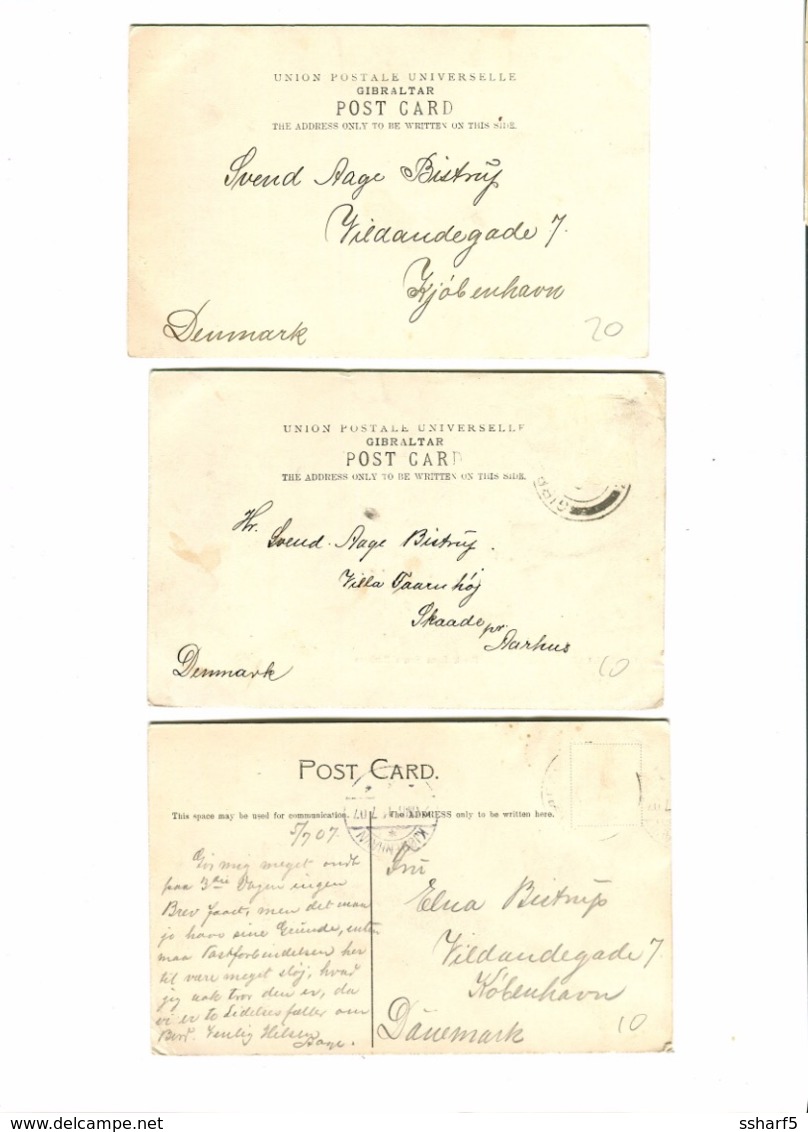 UNION POSTALE UNIVERSELLE
GIBRALTAR
POST CARD
THE ADDRESS ONLY TO BE WRITTEN ON THIS SIDE.
Svend Aage Bistrup
Vildandegade 7.
Kjöbenhavn
Denmark
20
UNION POSTALE UNIVERSELLE
GIBRALTAR
POST CARD
THE ADDRESS ONLY TO BE WRITTEN ON THIS SIDE.
GIBR
Hr.
Svend. Aage Bistrup.
Villa Taarnhöj
Skaade pr.
Aarhus
Denmark
10
POST CARD.
This space may be used for communication.
The ADDRESS only to be written here.
5/7 07.
Gör mig meget ondt
paa 3die Dagen ingen
Brev faaet, men det maa
jo have sine Grunde, enten
maa Postforbindelsen her
til være meget slöj, hvad
jeg nok tror den er, da
vi er to Lidelsesfæller om
Venlig Hilsen
Aage.
Fru
Elna Bistrup
Vildandegade 7
Köbenhavn
Dänemark
10
ssharf5